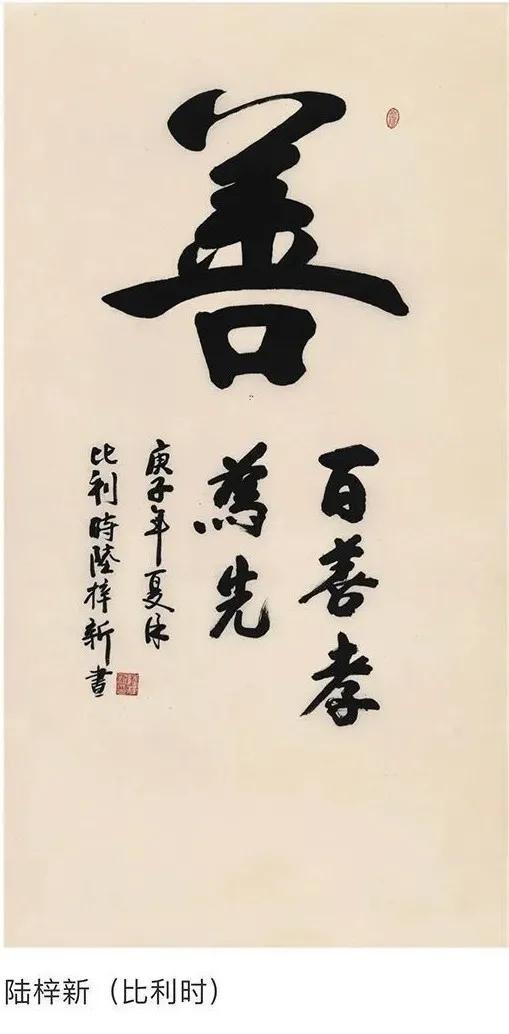 善
百善孝
為先
庚子年夏泳
比利時陸梓新書
陆梓新（比利时）